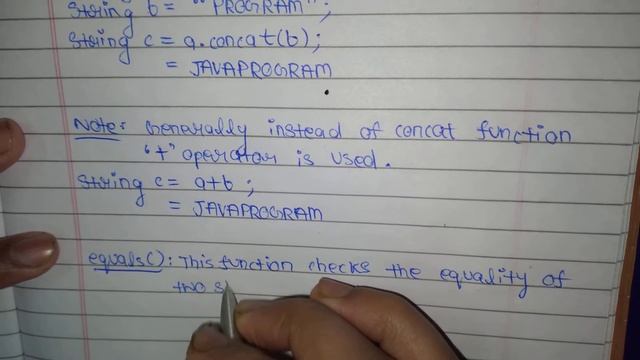 String b = "PROGRAM";
String c = a.concat(b);
= JAVAPROGRAM
Note: Generally instead of concat function
"+" operator is used.
String c = a+b;
= JAVAPROGRAM
equals(): This function checks the equality of
two s